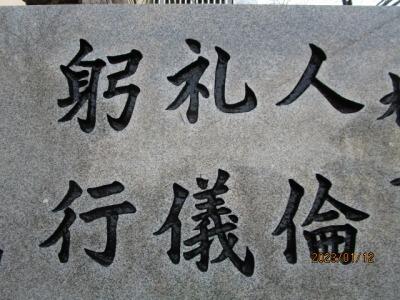 人倫
礼儀
躬行
2023/01/12